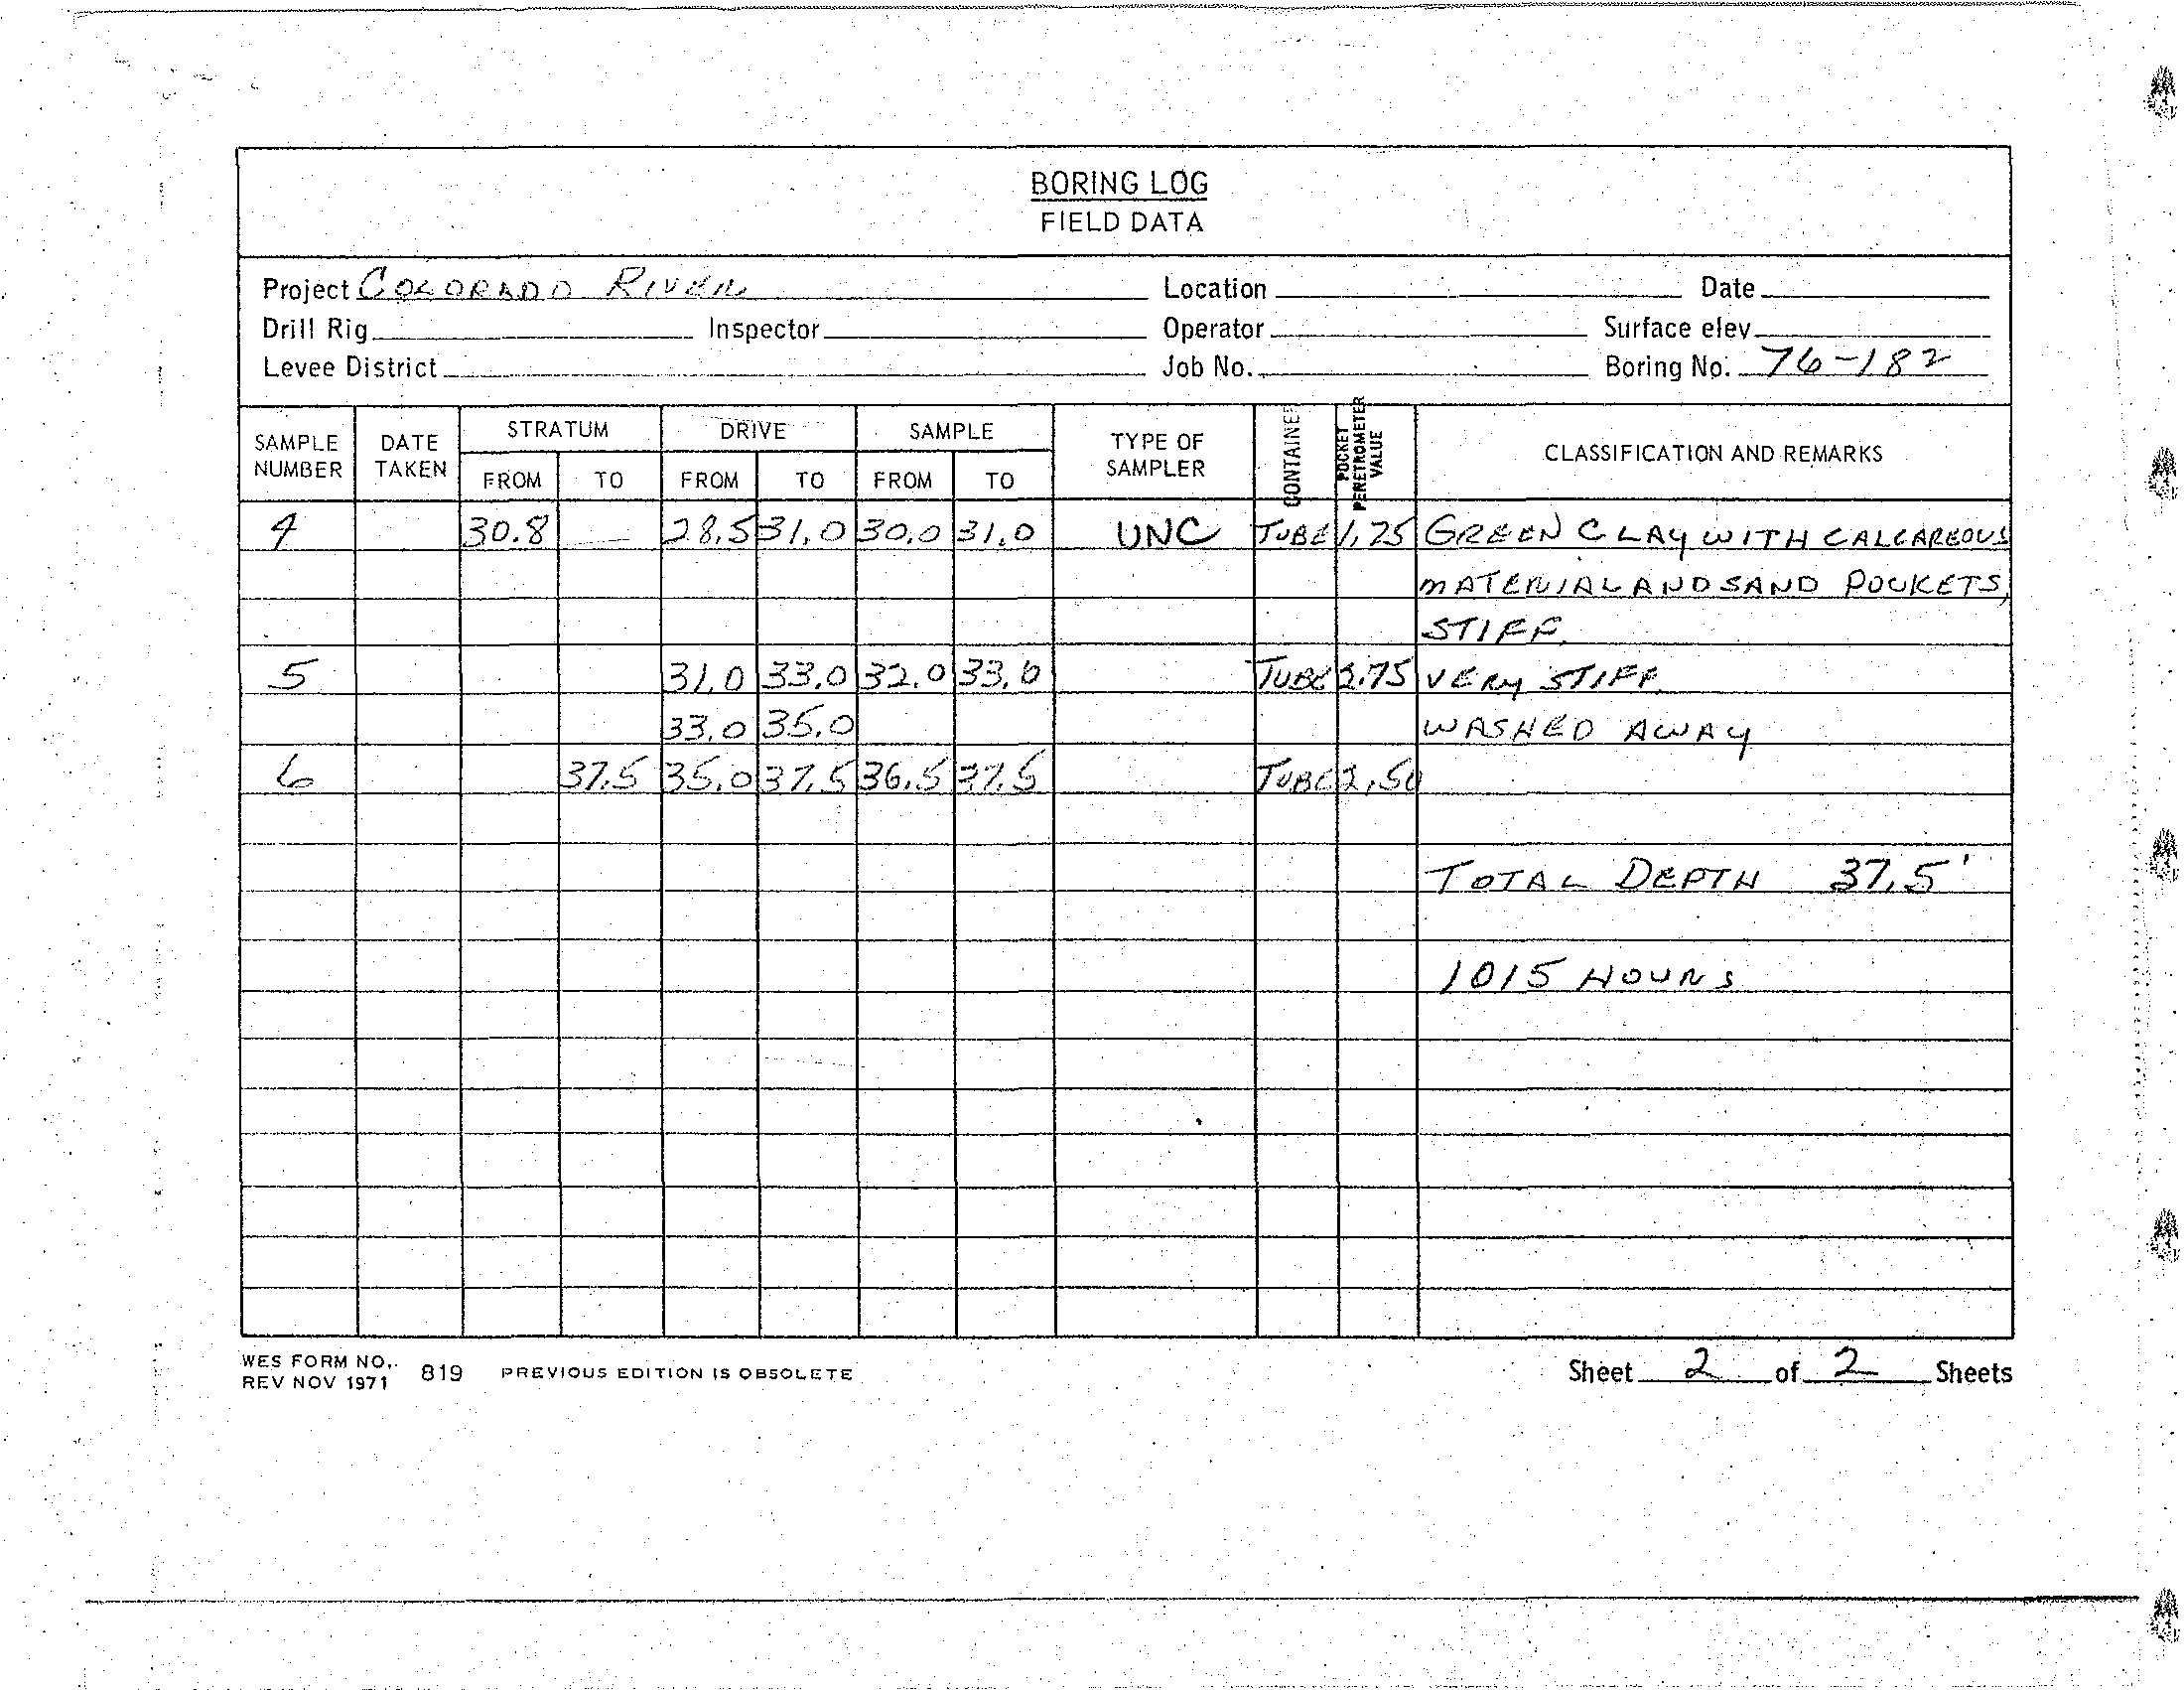 BORING LOG
FIELD DATA
Project COLORADO RIVER Location Date
Drill Rig Inspector Operator Surface elev.
Levee District Job No. Boring No. 76-182
SAMPLE NUMBER DATE TAKEN STRATUM FROM TO DRIVE FROM TO SAMPLE FROM TO TYPE OF SAMPLER CONTAINER POCKET PENETROMETER VALUE CLASSIFICATION AND REMARKS
4 30.8 — 28.5 31.0 30.0 31.0 UNC TUBE 1.75 GREEN CLAY WITH CALCAREOUS
MATERIAL AND SAND POCKETS,
STIFF.
5 31.0 33.0 32.0 33.0 TUBE 2.75 VERY STIFF.
33.0 35.0 WASHED AWAY
6 37.5 35.0 37.5 36.5 37.5 TUBE 2.50
TOTAL DEPTH 37.5'
1015 HOURS
WES FORM NO. 819 PREVIOUS EDITION IS OBSOLETE
REV NOV 1971
Sheet 2 of 2 Sheets